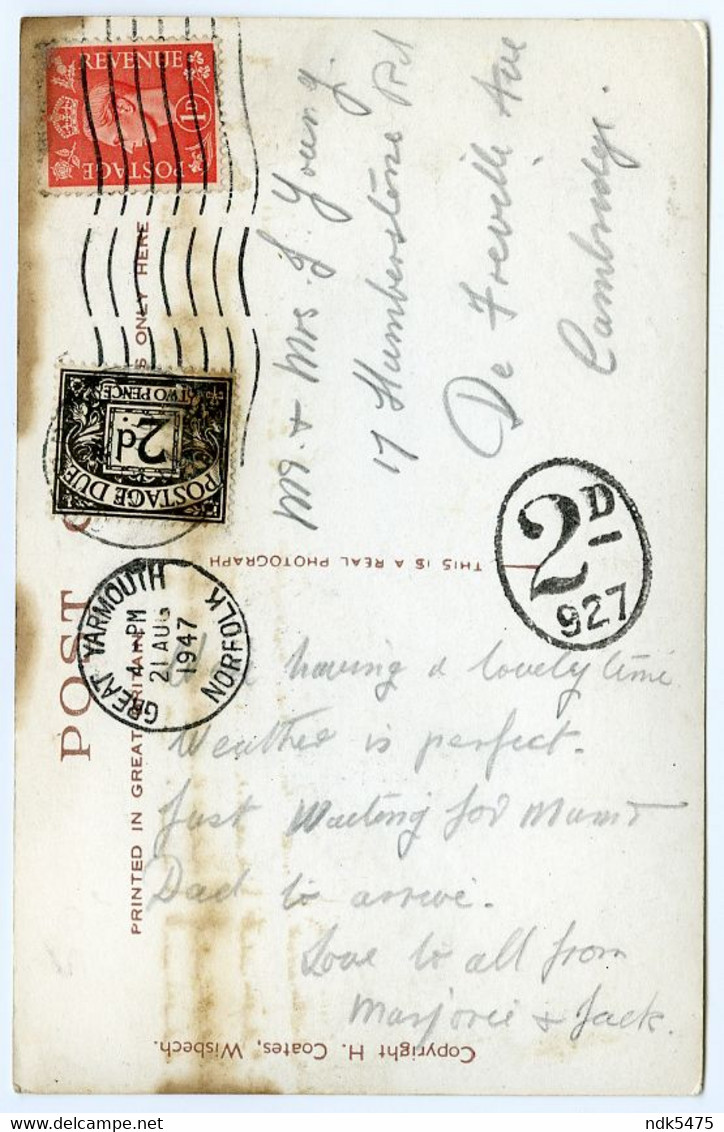 REVENUE
1D
POSTAGE
TWO PENCE
2d.
POSTAGE DUE
GREAT YARMOUTH
4 - PM
21 AUG
1947
NORFOLK
POST
PRINTED IN GREAT BRITAIN
ONLY HERE
Mr. & Mrs. J. Young.
17 Humberstone Rd
De Freville Ave
Cambridge.
2D
927
THIS IS A REAL PHOTOGRAPH
having a lovely time
Weather is perfect.
Just waiting for Mum &
Dad to arrive.
Love to all from
Marjorie & Jack.
Copyright H. Coates, Wisbech.
delcampe.net
ndk5475